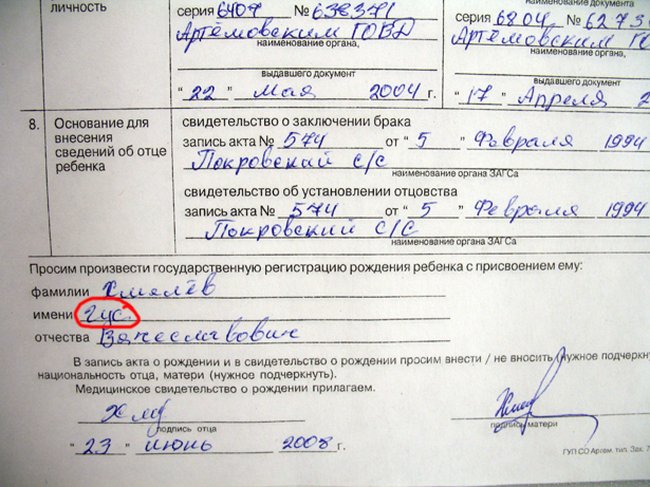 личность
серия 6404 № 638371
Артёмовским ГОВД
наименование органа,
выдавшего документ
" 22 " Мая 2004 г.
наименование документа
серия 6804 № 6273
Артёмовским ГО
наименование органа,
выдавшего документ
" 17 " Апреля 2
8. Основание для внесения сведений об отце ребенка
свидетельство о заключении брака
запись акта № 574 от " 5 " Февраля 1994
Покровский с/с
наименование органа ЗАГСа
свидетельство об установлении отцовства
запись акта № 574 от " 5 " Февраля 1994
Покровский с/с
наименование органа ЗАГСа
Просим произвести государственную регистрацию рождения ребенка с присвоением ему:
фамилии Хмялёв
имени Гус.
отчества Вячеславович
В запись акта о рождении и в свидетельство о рождении просим внести / не вносить (нужное подчеркн
национальность отца, матери (нужное подчеркнуть).
Медицинское свидетельство о рождении прилагаем.
подпись отца
подпись матери
" 23 " июнь 2008 г.
ГУП СО Артем. тип. Зак. 7